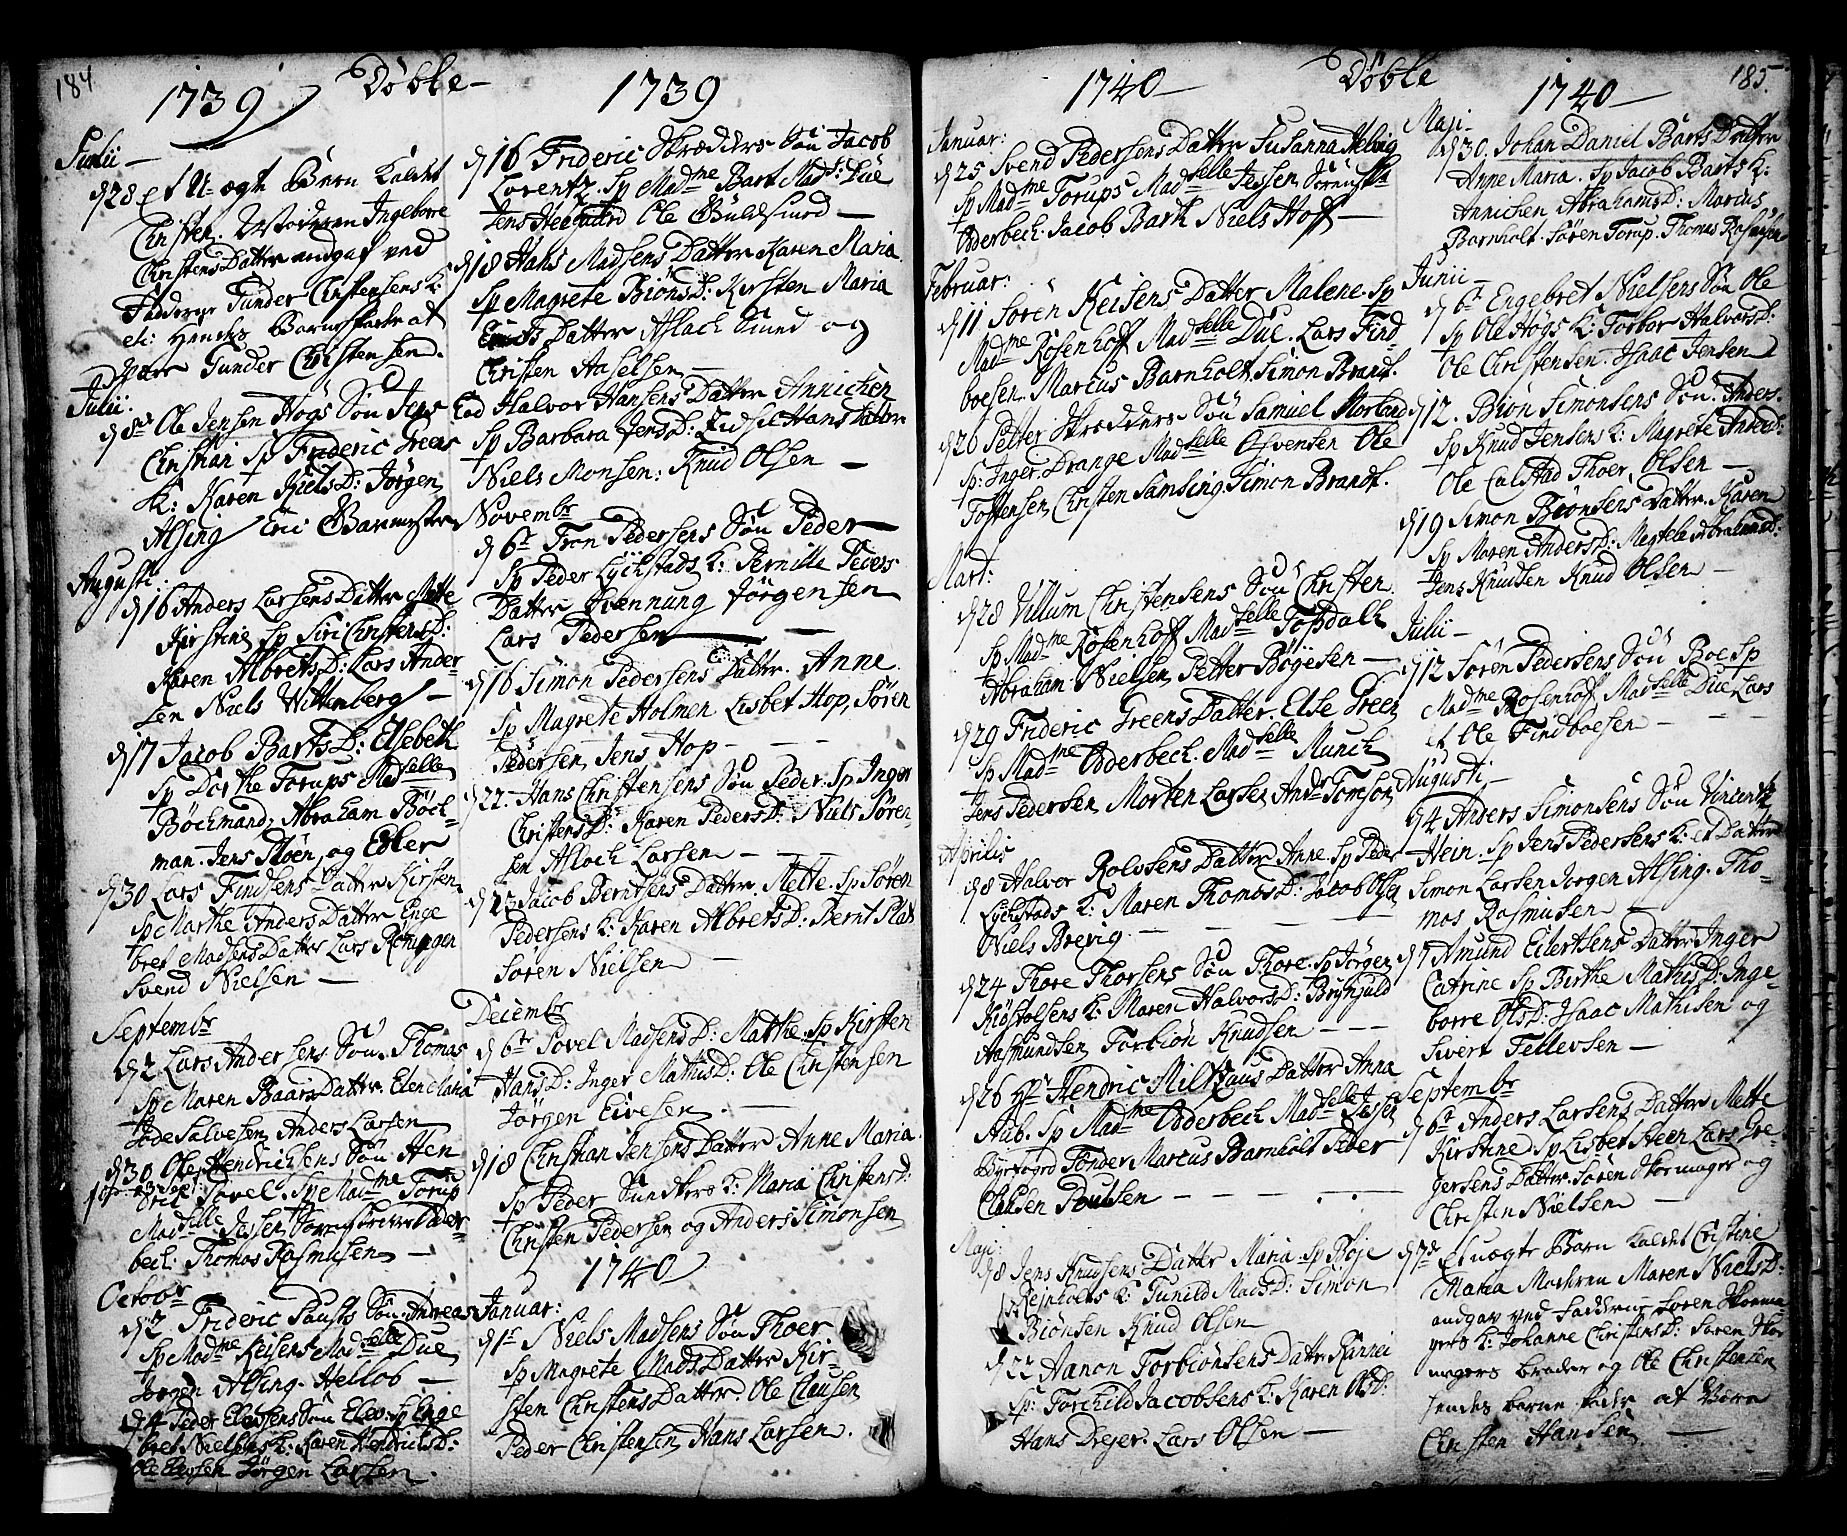 184
1739 Døbte 1739
Junii
d 28 et U-ægt Barn kaldet
Christen. Moderen Ingeborre
Christens Datter andgaf ved
Fadderne Tunder Christensens K:
etc: Hendes Barnefader at
være Tunder Christensen.
Julii.
d 8de Ole Jensen Høgs Søn Jens
Christian Sp Frideric Greens
K: Karen Niels D: Jørgen
Alsing Eric Barmester
Augusti
d 16 Anders Larsens Datter Mette
Kirstine, Sp Siri Christens D:
Karen Albrets D: Lars Ander-
sen Niels Wittenberg
d 17 Jacob Barts D: Elsebeth
Sp Dorthe Torups Madselle
Bøckmand, Abraham Bøck-
man. Jens Ploen og Edler
d 30 Lars Findsens Datter Kirsten
Sp Marthe Anders Datter Enge
bret Madsens Datter Lars Rønningen
Svend Nielsen
Septembr
d 2 Lars Andersens Søn Thomas
Sp Maren Baars Datter. Elen Maria
Jode Salvesen Anders Larsen
d 30 Ole Hendrichsens Søn Hen
dric Povel. Sp Madme Torup
Madselle Jessen, Sørenskriver Odder-
bech. Thomas Rasmusen
Octobr
d 2 Frideric Fausts Søn Andreas
Sp Madme Keisens Madselle Due
Jørgen Alsing. Hellob
d 4 Peder Elevsens Søn Elev. Sp Enge
bret Nielsens K: Karen Hendrichs D:
Ole Elevsen Jørgen Larsen.
d 16 Frideric Skræders Søn Jacob
Lorentz. Sp Madme Bart Mads: Due
Jens Heegaard Ole Guldsmed
d 18 Hans Madsens Datter Karen Maria
Sp Magrete Biøns D: Kirsten Maria
Datter Aslach Smed og
Christen Aselsen
Eod Halvor Hansens Datter Annichen
Sp Barbara Jens D: Zidsel Hans Datter
Niels Monsen: Knud Olsen
Novembr
d 6te Tron Pedersens Søn Peder
Sp Peder Lychstads K: Pernille Peders
Datter Svennung Jørgensen
Lars Pedersen
d 16 Simon Pedersens Datter. Anne
Sp Magrete Holmen Lisbet Hop, Søren
Pedersen, Jens Hop
d 22. Hans Christensens Søn Peder. Sp Inger
Christens D: Karen Peders D: Niels Søren-
sen Asloch Larsen
d 23 Jacob Berntsens Datter. Mette. Sp Søren
Pedersens K: Karen Albrets D: Bernt Plat
Søren Nielsen
Decembr
d 6te Povel Madsens D: Matthe. Sp Kirsten
Hans D: Inger Mathis D: Ole Christensen
Jørgen Eivesen.
d 18 Christian Jensens Datter Anne Maria.
Sp Peder Sundkers K: Maria Christens D:
Christen Pedersen og Anders Simonsen
1740
Januar:
d 1te Niels Madsens Søn Thoer.
Sp Magrete Mads Datter Kir-
sten Christens Datter. Ole Clausen
Peder Christensen Hans Larsen.
185.
1740 Døbte 1740
Januar:
d 25 Svend Pedersens Datter Susanna Helvig
Sp Madme Torups Madselle Jessen Sørenskr
Odderbech. Jacob Barth Niels Hoff
Februar:
d 11 Søren Keisens Datter Malene. Sp
Madme Rosenhoff Madselle Due. Lars Find-
boesen. Marcus Barnholt. Simon Brandt.
d 26 Petter Skrædders Søn Samuel Norland
Sp: Inger Drange Madselle Ole
Tostensen, Christen Samsing. Simon Brandt.
Mart:
d 28 Villum Christensens Søn Christen
Sp Madme Rosenhoff Madselle Topdalh
Abraham Nielsen Petter Bøyesen
d 29 Frideric Greens Datter. Else Green
Sp Madme Odderbech. Madselle Munch
Jens Pedersen Morten Larsen Ands Tomson
Aprilis
d 8 Halvor Rolvsens Datter Anne. Sp Peder
Lychstads K: Maren Thomas D: Jacob Olsen
Niels Brevig.
d 24 Thore Thorsens Søn Thore. Sp Jørgen
Kiøstolsens K: Maren Halvors D: Brynjuld
Aasmundsen Torbiøn Knudsen
d 26 Hr Hendric Miltzaus Datter Anna
Aub. Sp Madme Odderbech Madselle Jessen
Byefoged Tønder Marcus Barnholt Peder
Clausen Poulsen
Maji:
d 8 Jens Knudsens Datter Maria. Sp Boje
Reinholts K: Gunild Mads D: Simon
Biønsen Knud Olsen
d 22 Aanon Torbiønsens Datter Rannei
Sp: Torchild Jacobsens K: Karen Ols D:
Hans Dreyer. Lars Olsen
Maji
d 30. Johan Daniel Barts Datter
Anne Maria. Sp Jacob Barts K:
Annichen Abrahams D: Marcus
Barnholt. Søren Torup. Thomas Rasmusen
Junii
d 6te Engebret Nielsens Søn Ole
Sp Ole Høgs K: Torbor Halvors D:
Ole Christensen. Isaac Jensen
d 12. Biøn Simonsens Søn. Anders.
Sp Knud Jensens K: Magrete Anders D:
Ole Calstad Thoer Olsen
d 19 Simon Biønsens Datter. Karen
Sp Maren Anders D: Magtele Abrahams D:
Jens Knudsen Knud Olsen
Julii
d 12 Søren Pedersens Søn Boe Sp
Madme Rosenhoff Madselle Due Lars
et Ole Findboesen
Augusti
d 4 Anders Simonsens Søn Vincentz
Hein. Sp Jens Pedersens K: et Datter
Simon Larsen Jørgen Alsing. Tho-
mas Rasmusen
d 7 Amund Eilertsens Datter Inger
Catrine Sp Birthe Mathis D: Inge
borre Ols D: Isaac Mathisen og
Sivert Tellevsen
Septembr
d 6te Anders Larsens Datter Mette
Kirstine Sp Lisbet Steen Lars Gre-
gersens Datter. Søren Skomager og
Christen Nielsen
d 7de Et uægte Barn kaldet Cristine
Maria Moderen Maren Niels D:
andgav ved Fadderne Søren Skoma
gers K: Johanne Christens D: Søren Sko
magers broder og Ole Christensen
hendes barne fader at Være
Christen Hansen